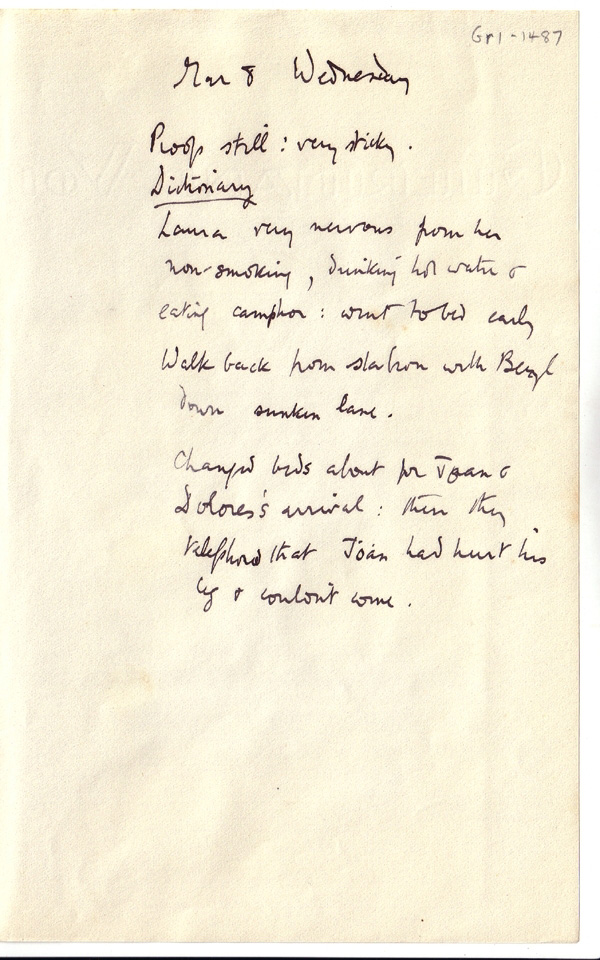 Gr1-1487
Mar 8 Wednesday
Proofs still : very sticky .
Dictionary
Laura very nervous from her
non-smoking , drinking hot water &
eating camphor : went to bed early
Walk back from station with Beryl
down sunken lane .
Changed beds about for Joan &
Dolores's arrival : then they
telephoned that Joan had hurt his
leg & couldn't come .